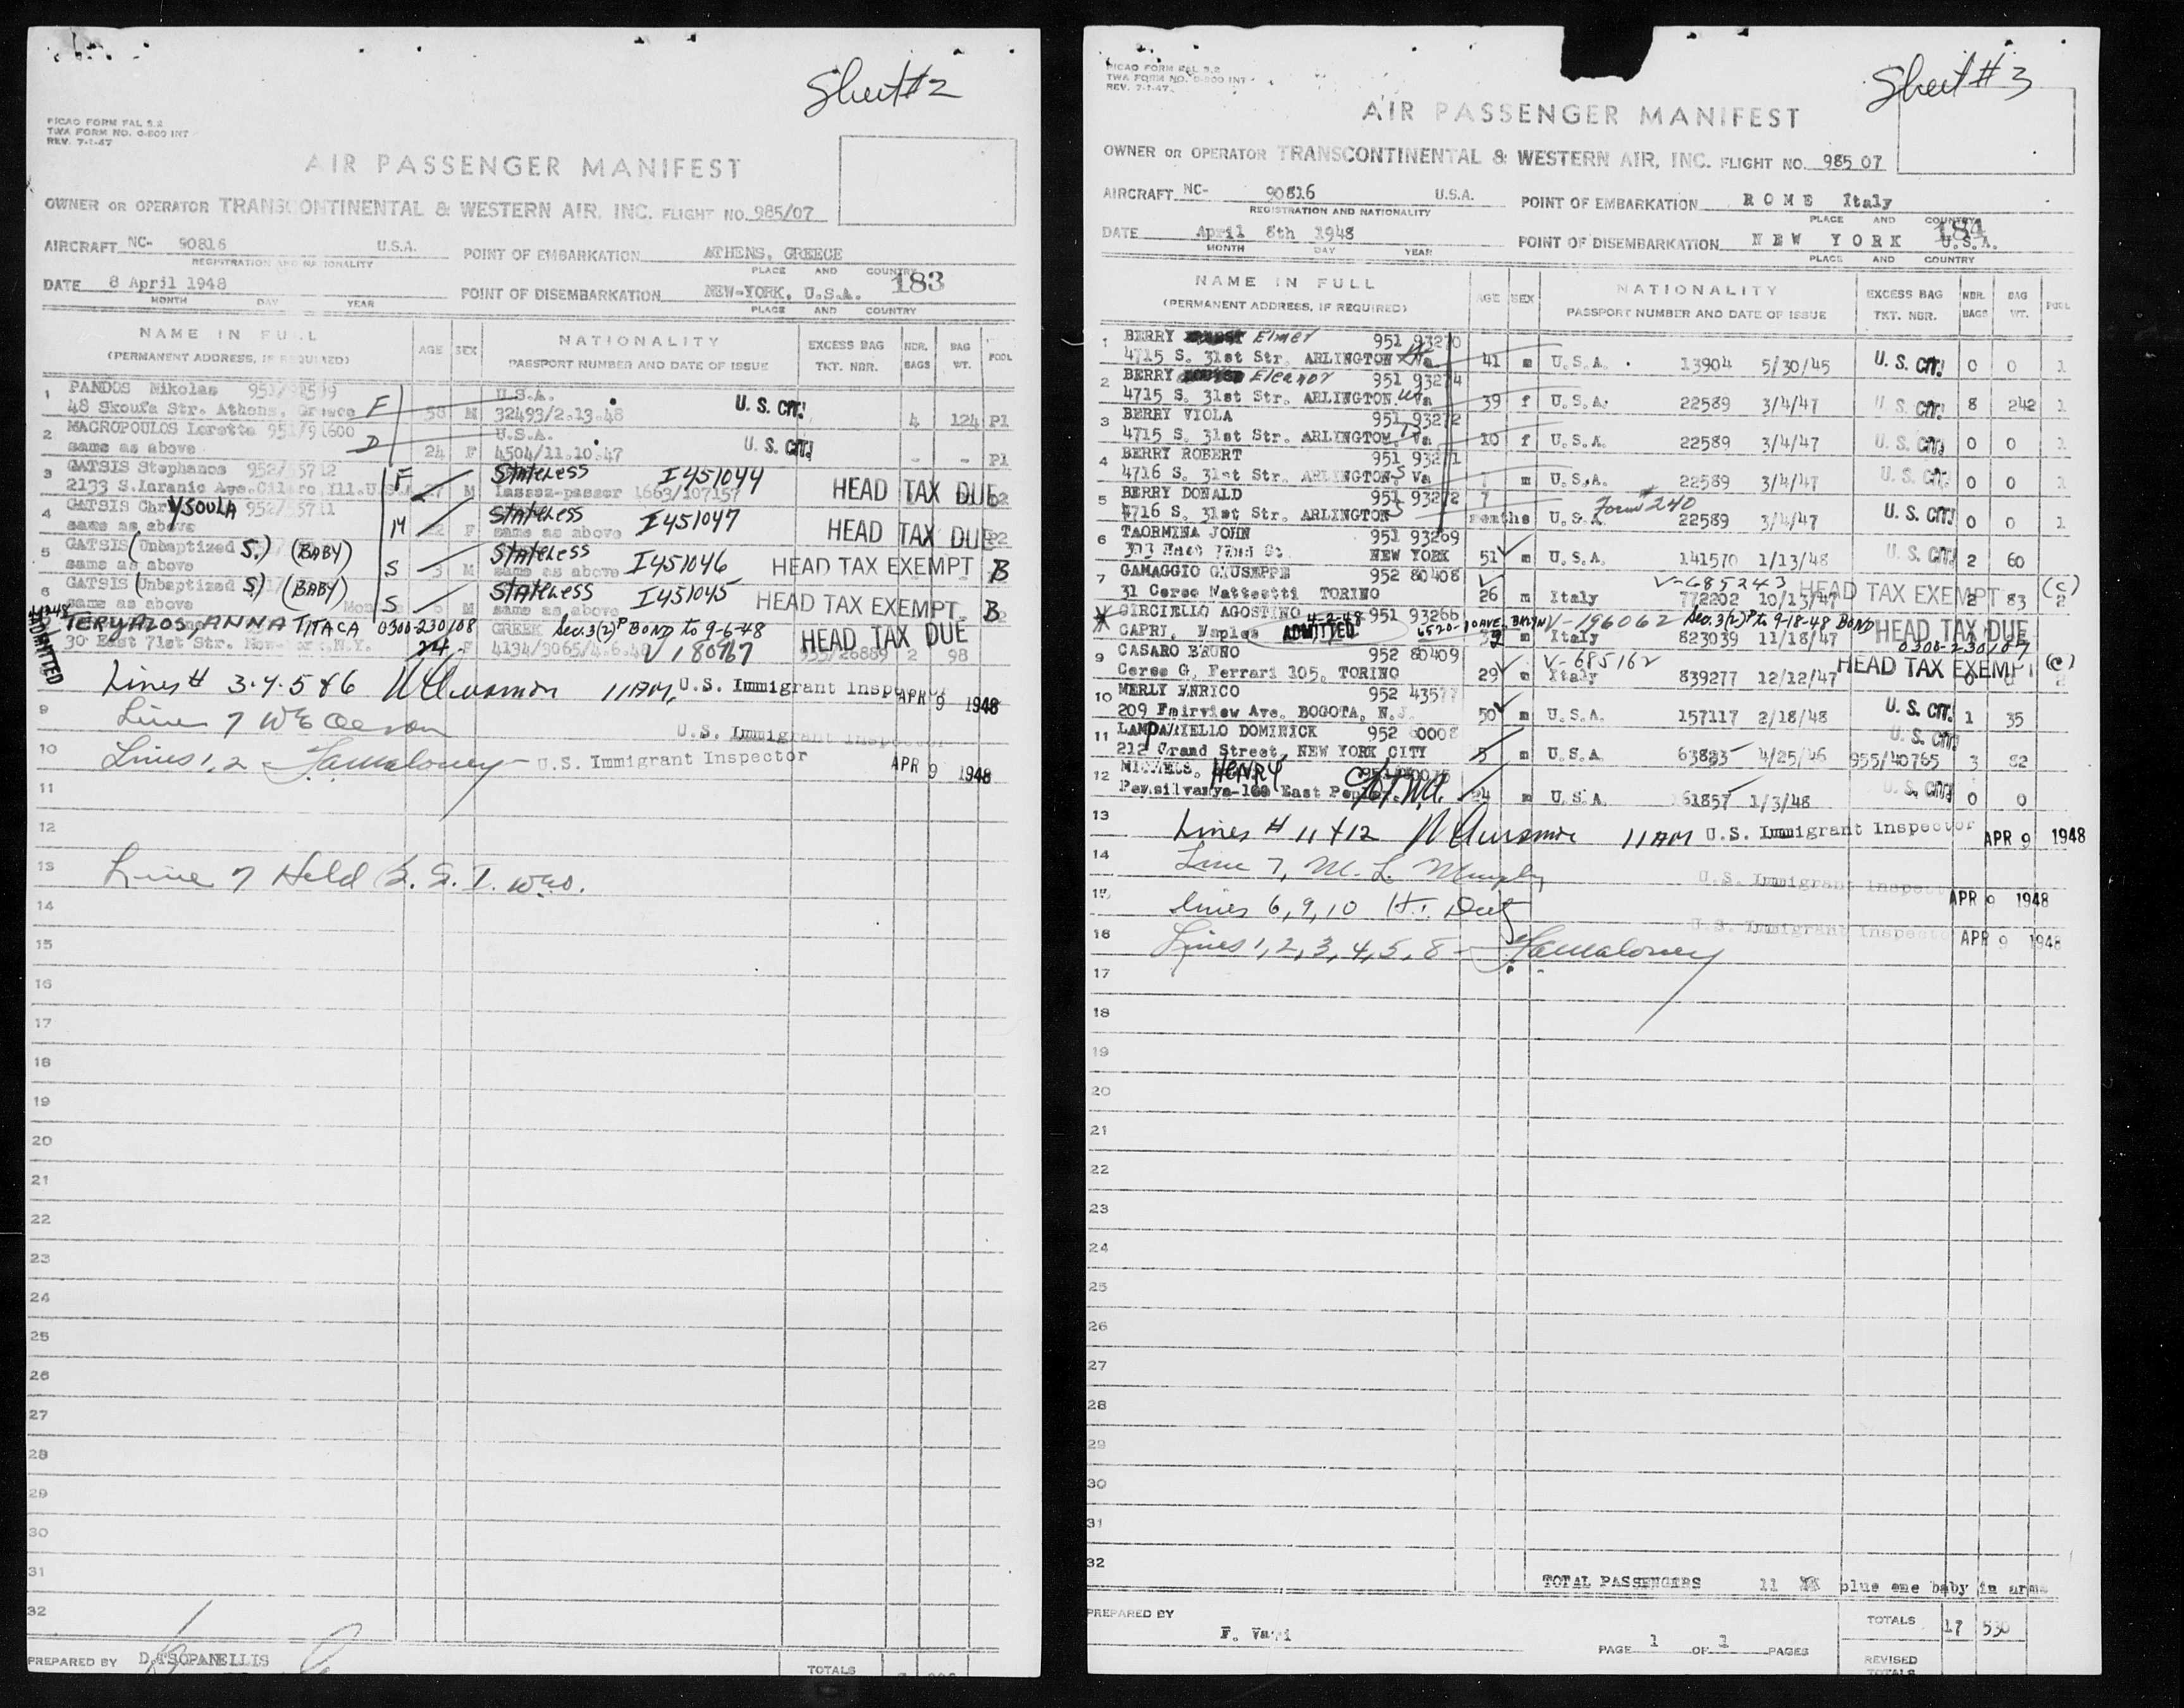 Sheet #2
PICAO FORM FAL 5.2
TWA FORM NO. O-800 INT
REV. 7-1-47
AIR PASSENGER MANIFEST
OWNER OR OPERATOR TRANSCONTINENTAL & WESTERN AIR, INC. FLIGHT NO. 985/07
AIRCRAFT NC- 90816 U.S.A. POINT OF EMBARKATION ATHENS, GREECE
REGISTRATION AND NATIONALITY PLACE AND COUNTRY
183
DATE 8 April 1948 POINT OF DISEMBARKATION NEW-YORK, U.S.A.
MONTH DAY YEAR PLACE AND COUNTRY
NAME IN FULL AGE SEX NATIONALITY EXCESS BAG NBR. BAG POOL
(PERMANENT ADDRESS, IF REQUIRED) PASSPORT NUMBER AND DATE OF ISSUE TKT. NBR. BAGS WT.
1 PANDOS Nikolas U.S.A.
48 Skoufa Str. Athens, Greece F 58 M 32493/2.13.48 U. S. CIT! 4 124 P1
2 MACROPOULOS Loretta 951/91600 U.S.A.
same as above D 24 F 4504/11.10.47 U. S. CIT! - - P1
3 GATSIS Stephanos F Stateless I451044
2133 S.Laramie Ave. Ill. 27 M Lassez-passer 1663/107157 HEAD TAX DUE
4 GATSIS Chr YSOULA Stateless I451047
same as above M F same as above HEAD TAX DUE
5 GATSIS (Unbaptized S.) (BABY) Stateless I451046
same as above S 3 M same as above HEAD TAX EXEMPT B
6 GATSIS (Unbaptized S.) (BABY) Stateless I451045
same as above S M same as above HEAD TAX EXEMPT B
ADMITTED
TERYAZOS, ANNA TITACA 0300-230108 GREEK Sec. 3(2) BOND to 9-6-48 HEAD TAX DUE
30 East 71st Str. N.Y. 24 F V 180767 955/26889 2 98
Lines # 3.4.5 & 6 11 AM, U.S. Immigrant Inspector APR 9 1948
9 Line 7 U.S. Immigrant Inspector
10 Lines 1, 2 - U.S. Immigrant Inspector APR 9 1948
11
12
13 Line 7 Held
14
15
16
17
18
19
20
21
22
23
24
25
26
27
28
29
30
31
32
PREPARED BY D.TSOPANELLIS TOTALS
Sheet # 3
PICAO FORM FAL 5.2
TWA FORM NO. O-800 INT
REV. 7-1-47
AIR PASSENGER MANIFEST
OWNER OR OPERATOR TRANSCONTINENTAL & WESTERN AIR, INC. FLIGHT NO. 985 07
AIRCRAFT NC- 90816 U.S.A. POINT OF EMBARKATION ROME Italy
REGISTRATION AND NATIONALITY PLACE AND COUNTRY
184
DATE April 8th 1948 POINT OF DISEMBARKATION NEW YORK U.S.A.
MONTH DAY YEAR PLACE AND COUNTRY
NAME IN FULL AGE SEX NATIONALITY EXCESS BAG NBR. BAG POOL
(PERMANENT ADDRESS, IF REQUIRED) PASSPORT NUMBER AND DATE OF ISSUE TKT. NBR. BAGS WT.
1 BERRY Elmer 951 93270
4715 S. 31st Str. ARLINGTON Va 41 m U.S.A. 13904 5/30/45 U. S. CIT! 0 0 1
2 BERRY Eleanor 951 93274
4715 S. 31st Str. ARLINGTON Va 39 f U.S.A. 22589 3/4/47 U. S. CIT! 8 242 1
3 BERRY VIOLA 951 93272
4715 S. 31st Str. ARLINGTON Va 10 f U.S.A. 22589 3/4/47 U. S. CIT! 0 0 1
4 BERRY ROBERT 951 93271
4716 S. 31st Str. ARLINGTON Va m U.S.A. 22589 3/4/47 U. S. CIT! 0 0 1
5 BERRY DONALD 951 93272 7 Form #240
4716 S. 31st Str. ARLINGTON months U.S.A. 22589 3/4/47 U. S. CIT! 0 0 1
6 TAORMINA JOHN 951 93269
NEW YORK 51 m U.S.A. 141570 1/13/48 U. S. CIT! 2 60
7 GAMAGGIO GIUSEPPE 952 80408 V-685243 HEAD TAX EXEMPT (C)
31 Corso Matteotti TORINO 26 m Italy 772202 10/13/47 2 83 2
CIRCIELLO AGOSTINO 4-2-48 951 93266 6520-10 AVE. BKLYN V-196062 Sec. 3(2) to 9-18-48 BOND HEAD TAX DUE
CAPRI, Naples ADMITTED m Italy 823039 11/18/47 0300-230107
9 CASARO BRUNO 952 80409 V-685162 HEAD TAX EXEMPT (C)
Corso G. Ferrari 105, TORINO 29 m Italy 839277 12/12/47 0
10 MERLY ENRICO 952 43577
209 Fairview Ave. BOGOTA, N.J. 50 m U.S.A. 157117 2/18/48 U. S. CIT. 1 35
11 DOMINICK 952
212 Grand Street, NEW YORK CITY 5 m U.S.A. 4/25/46 U. S. CIT! 955/40765 3
12 HENRY
East m U.S.A. 61857 1/3/48 U. S. CIT! 0 0
13 Lines # 11 + 12 11 AM U.S. Immigrant Inspector APR 9 1948
14 Line 7, M. L. Murphy U.S. Immigrant Inspector APR 9 1948
15 Lines 6, 9, 10 U.S. Immigrant Inspector APR 9 1948
16 Lines 1, 2, 3, 4, 5, 8 -
17
18
19
20
21
22
23
24
25
26
27
28
29
30
31
32
TOTAL PASSENGERS 11 plus one baby in arms
PREPARED BY F. TOTALS 17 530
PAGE 1 OF 1 PAGES
REVISED TOTALS